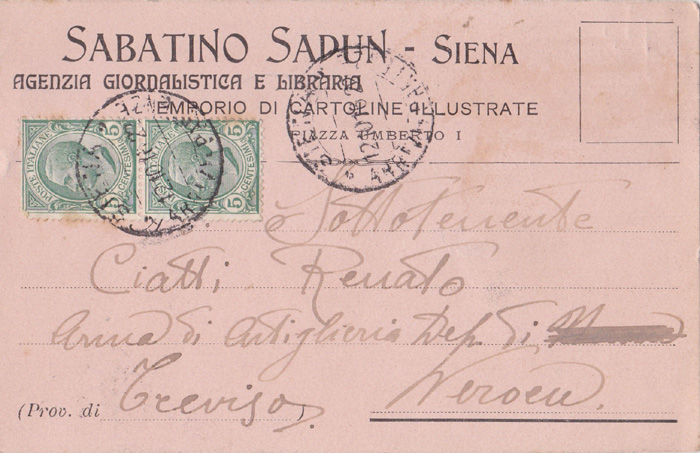 SABATINO SADUN - SIENA
AGENZIA GIORNALISTICA E LIBRARIA
EMPORIO DI CARTOLINE ILLUSTRATE
PIAZZA UMBERTO I
POSTE ITALIANE CENTESIMI 5
POSTE ITALIANE CENTESIMI 5
Sottotenente
Ciatti Renato
Arma di Artiglieria Dep. di
(Prov. di Treviso)